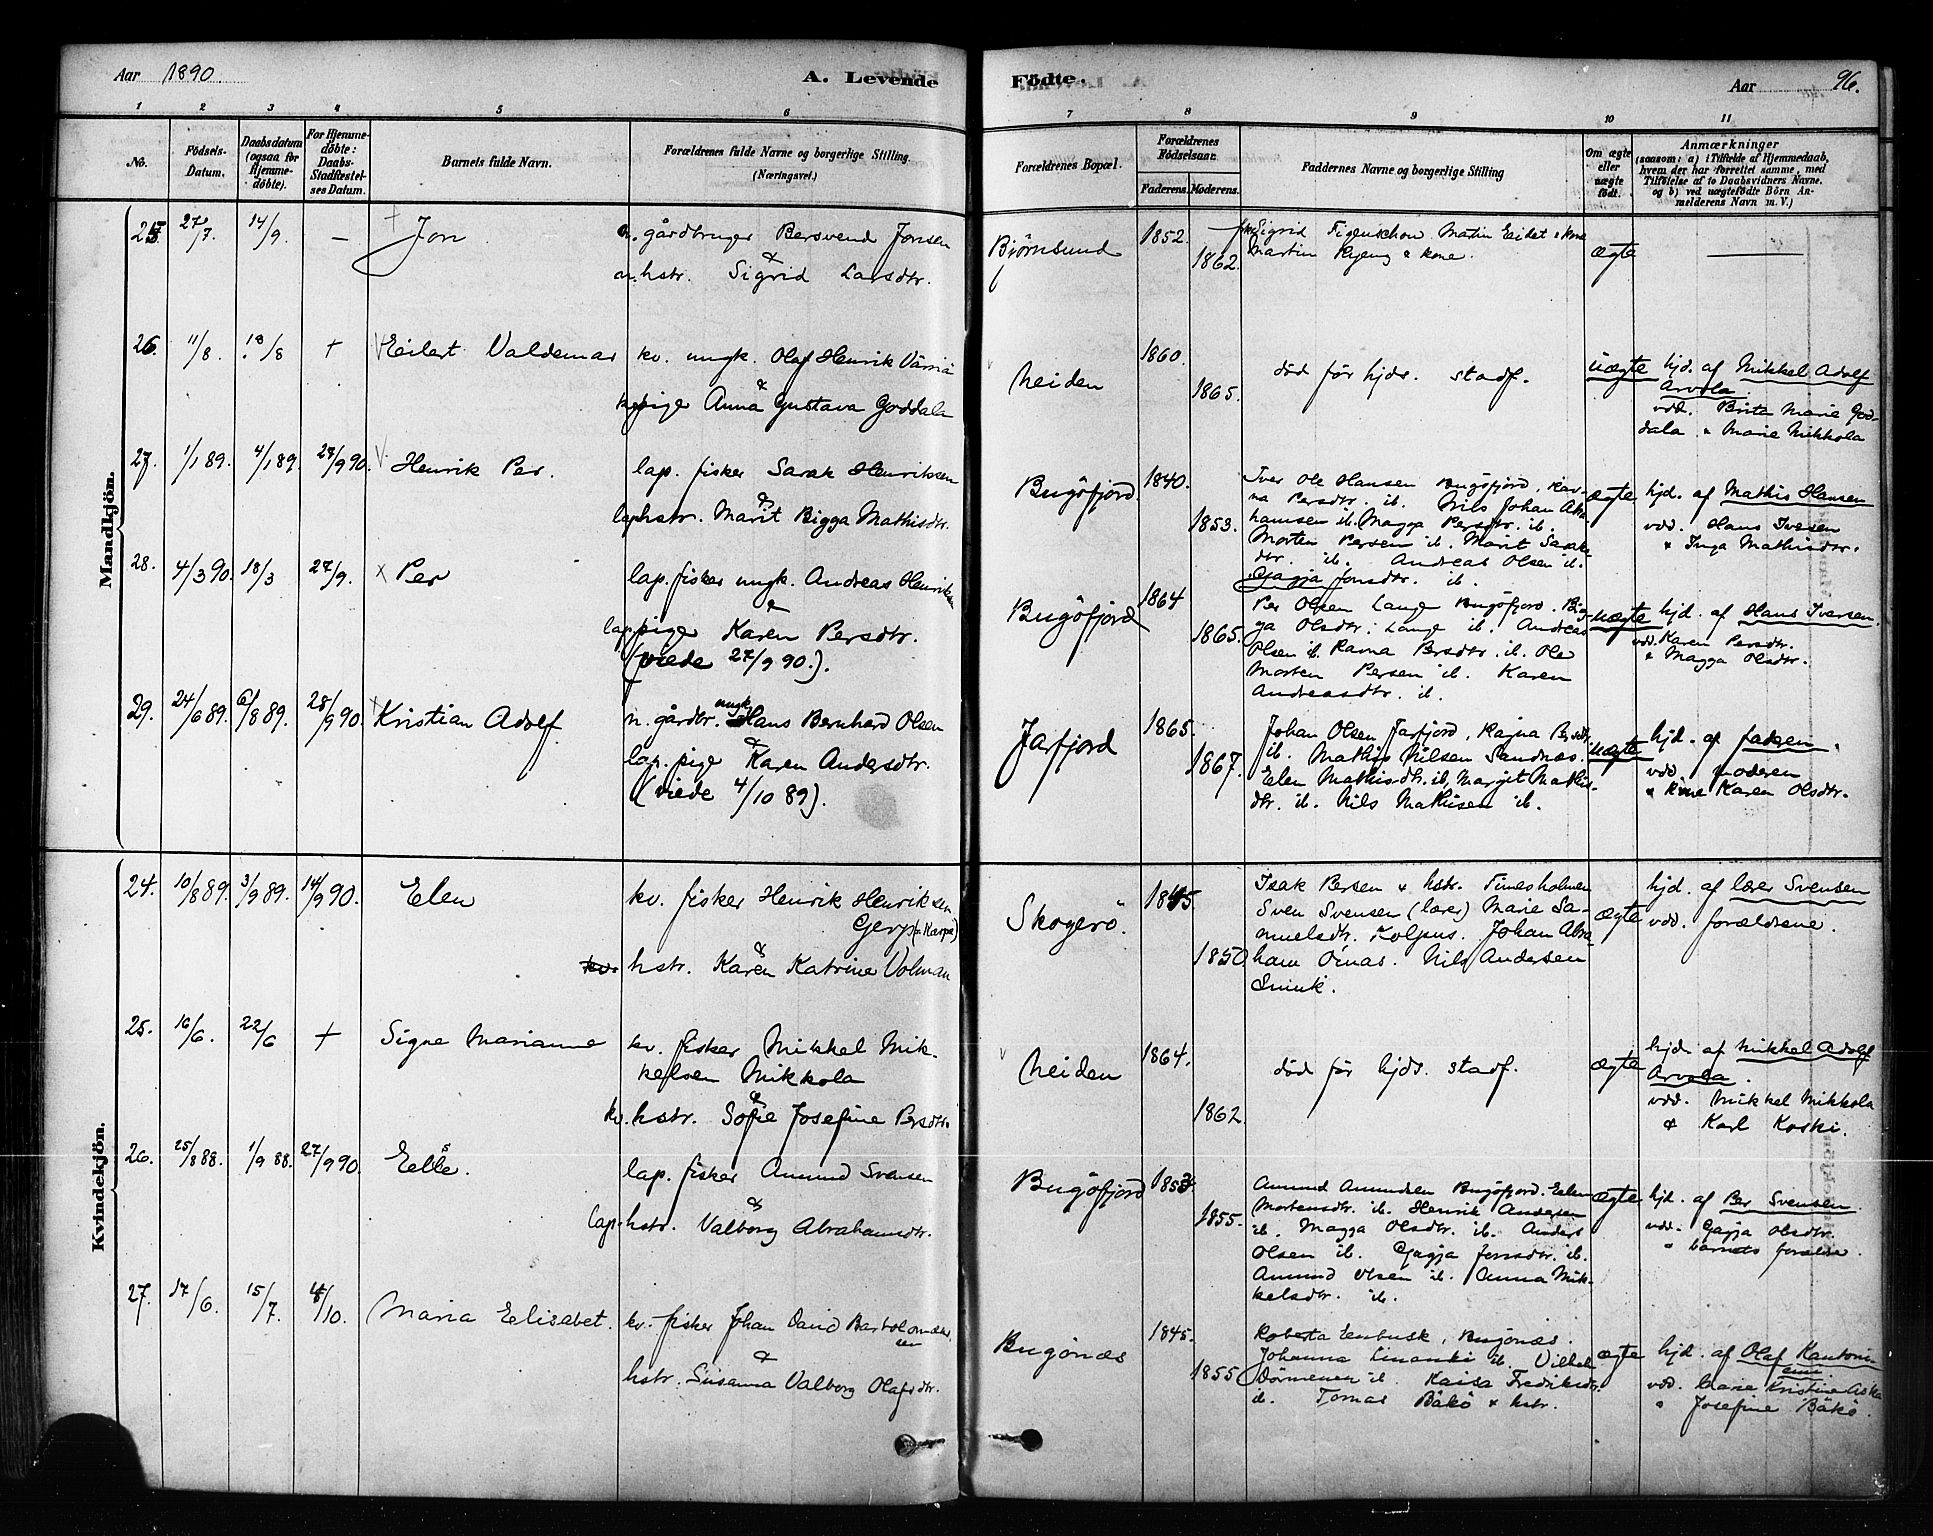 Aar 1890.
A. Levende
Fødte.
Aar 96.
1 2 3 4 5 6 7 8 9 10 11
No.
Fødsels-Datum.
Daabsdatum (ogsaa for Hjemmedøbte).
For Hjemmedøbte: Daabs-Stadfæstelses Datum.
Barnets fulde Navn.
Forældrenes fulde Navne og borgerlige Stilling.
(Næringsvei.)
Forældrenes Bopæl.
Forældrenes Fødselsaar.
Faderens. Moderens.
Faddernes Navne og borgerlige Stilling
Om ægte eller uægte født.
Anmærkninger
(saasom: a) i Tilfælde af Hjemmedaab, hvem der har forrettet samme, med Tilføielse af to Daabsvidners Navne, og b) ved uægtefødte Børn Anmelderens Navn m. V.)
Mandkjön.
25. 27/7. 14/9. — Jon.
n. gårdbruger Bersvend Jonsen
&
n. hstr. Sigrid Larsdtr.
Bjørnsund 1852. 1862.
Sigrid Figenschou Martin Eidet & kone
Martin & kone.
ægte —
26. 11/8. 18/8 + Eilert Valdemar
kv. ungk. Olaf Henrik Väriä
&
kv. pige Anna Gustava Goddala
Neiden 1860. 1865.
død før hjds. stadf.
uægte
hjd. af Mikkel Adolf
Arvola
vdd. Brita Marie God-
dala & Marie Mikkola
27. 1/1 89. 4/1 89. 28/9 90. Henrik Per.
lap. fisker Sarak Henriksen
&
lap hstr. Marit Bigga Mathisdtr.
Bugöfjord. 1840. 1853.
Iver Ole Hansen Bugöfjord, Kar-
na Persdtr. ib. Nils Johan Abra
hamsen ib. Magga Persdtr. ib.
Morten Persen ib. Marit Saraks
dtr. ib. Andreas Olsen ib.
Gagja Jonsdtr. ib.
ægte
hjd. af Mathis Hansen
vdd. Hans Iversen
& Inga Mathisdtr.
28. 4/3 90. 18/3 27/9. Per
lap. fisker ungk. Andreas Henriksen
&
lap. pige Karen Persdtr.
(viede 27/9 90.).
Bugöfjord 1864 1865.
Per Olsen Lange Bugöfjord. Big-
ga Olsdtr. Lange ib. Andreas
Olsen ib. Karna Persdtr. ib. Ole
Morten Persen ib. Karen
Andreasdtr. ib.
uægte
hjd. af Hans Iversen.
vdd. Karen Persdtr.
& Magga Olsdtr.
29. 24/6 89. 6/8 89. 28/9 90 Kristian Adolf.
n. gårdbr. ungk. Hans Bernhard Olsen
&
lap. pige Karen Andersdtr.
(viede 4/10 89).
Jarfjord 1865. 1867.
Johan Olsen Jarfjord, Ragna Persdtr.
ib. Mathis Nilsen Sandnæs.
Elen Mathisdtr. ib, Margit Mathis-
dtr. ib. Nils Mathisen ib.
uægte
hjd. af faderen.
vdd. moderen
& kone Karen Olsdtr.
Kvindekjön.
24. 10/8 89. 3/9 89. 14/9 90. Elen
kv. fisker Henrik Henriksen
&
hstr. Karen Katrine Volman
Skogerö. 1845. 1850
Isak Persen & hstr. Fimesholmen
Sven Svensen (lærer) Marie Sa-
muelsdtr. Kolpus. Johan Abra
ham Oinas. Nils Andersen
ægte
hjd. af lærer Svensen
vdd. forældrene.
25. 16/6. 22/6 + Signe Marianne
kv. fisker Mikkel Mik-
kelsen Mikkola
&
kv. hstr. Sofie Josefine Persdtr.
Neiden 1864. 1862.
død før hjds. stadf.
ægte
hjd. af Mikkel Adolf
Arvola.
vdd. Mikkel Mikkola
& Karl Koski.
26. 25/8 88. 1/9 88. 27/9 90. Elle.
lap. fisker Amund Svensen
&
lap. hstr. Valborg Abrahamsdtr.
Bugöfjord 1853 1855.
Amund Amundsen Bugöfjord. Elen
Mortensdtr. ib. Henrik Andersen
ib. Magga Olsdtr. ib. Anders
Olsen ib. Gagja Jonsdtr. ib.
Amund Olsen ib. Anna Mik-
kelsdtr. ib.
ægte
hjd. af Per Svensen
vdd. Gagja Olsdtr.
& barnets forældre.
27. 17/6. 15/7. 4/10. Maria Elisabet.
kv. fisker Johan David Bartolomæus
sen
&
hstr. Susanna Valborg Olafsdtr.
Bugönæs 1845. 1855
Roberta Bugönæs.
Johanna ib. Vilhelm
ib. Kaisa Fredriksdtr.
ib. Tomas Bäkö & hstr.
ægte
hjd. af Olaf
vdd. Marie Kristine
& Josefine Bäkö.